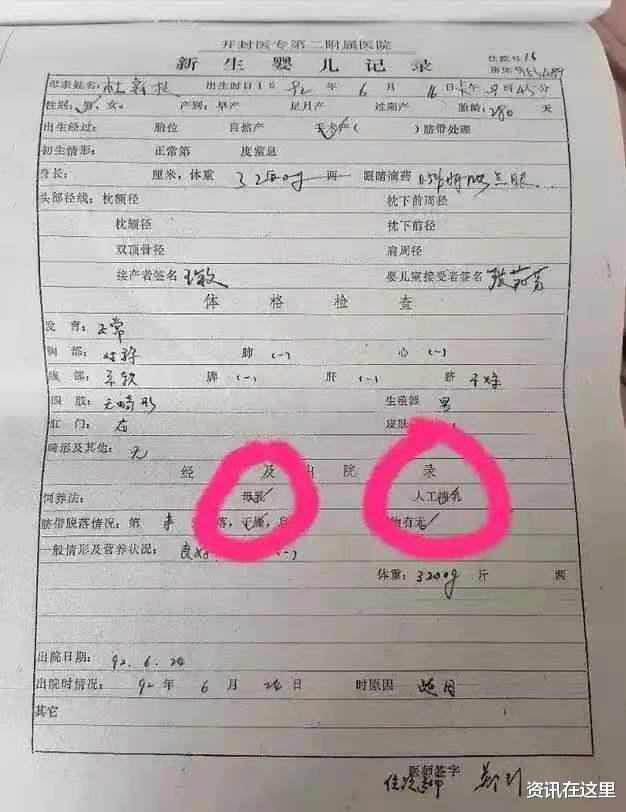 开封医专第二附属医院
新生婴儿记录
住院号16
母亲姓名: 杜新枝 出生时日19 92 年 6 月 16 日 午 时45分
性别: 男、女。 产别: 早产 足月产 过期产 胎龄: 280 天
出生经过: 胎位 自然产 手术产( ) 脐带处理
初生情形: 正常第 度窒息
身长: 厘米, 体重 3250g 两 眼睛滴药 点眼
头部径线: 枕额径 枕下前周径
枕颏径 枕下前径
双顶骨径 肩周径
接产者签名 婴儿室接受者签名
体格检查
发育: 正常
胸部: 对称 肺 (-) 心 (-)
腹部: 平软 脾 (-) 肝 (-) 脐 干燥
四肢: 无畸形 生殖器 男
肛门: 有 皮肤
畸形及其他: 无
经 及出院 录
饲养法: 母乳✓ 人工哺乳✓
脐带脱落情况: 第 落, 干燥, 物有无
一般情形及营养状况: 良好 (-)
体重: 3200g 斤 两
出院日期: 92.6.24
出院时情况: 92 年 6 月 24 日 时原因
其它
医师签字
资讯在这里